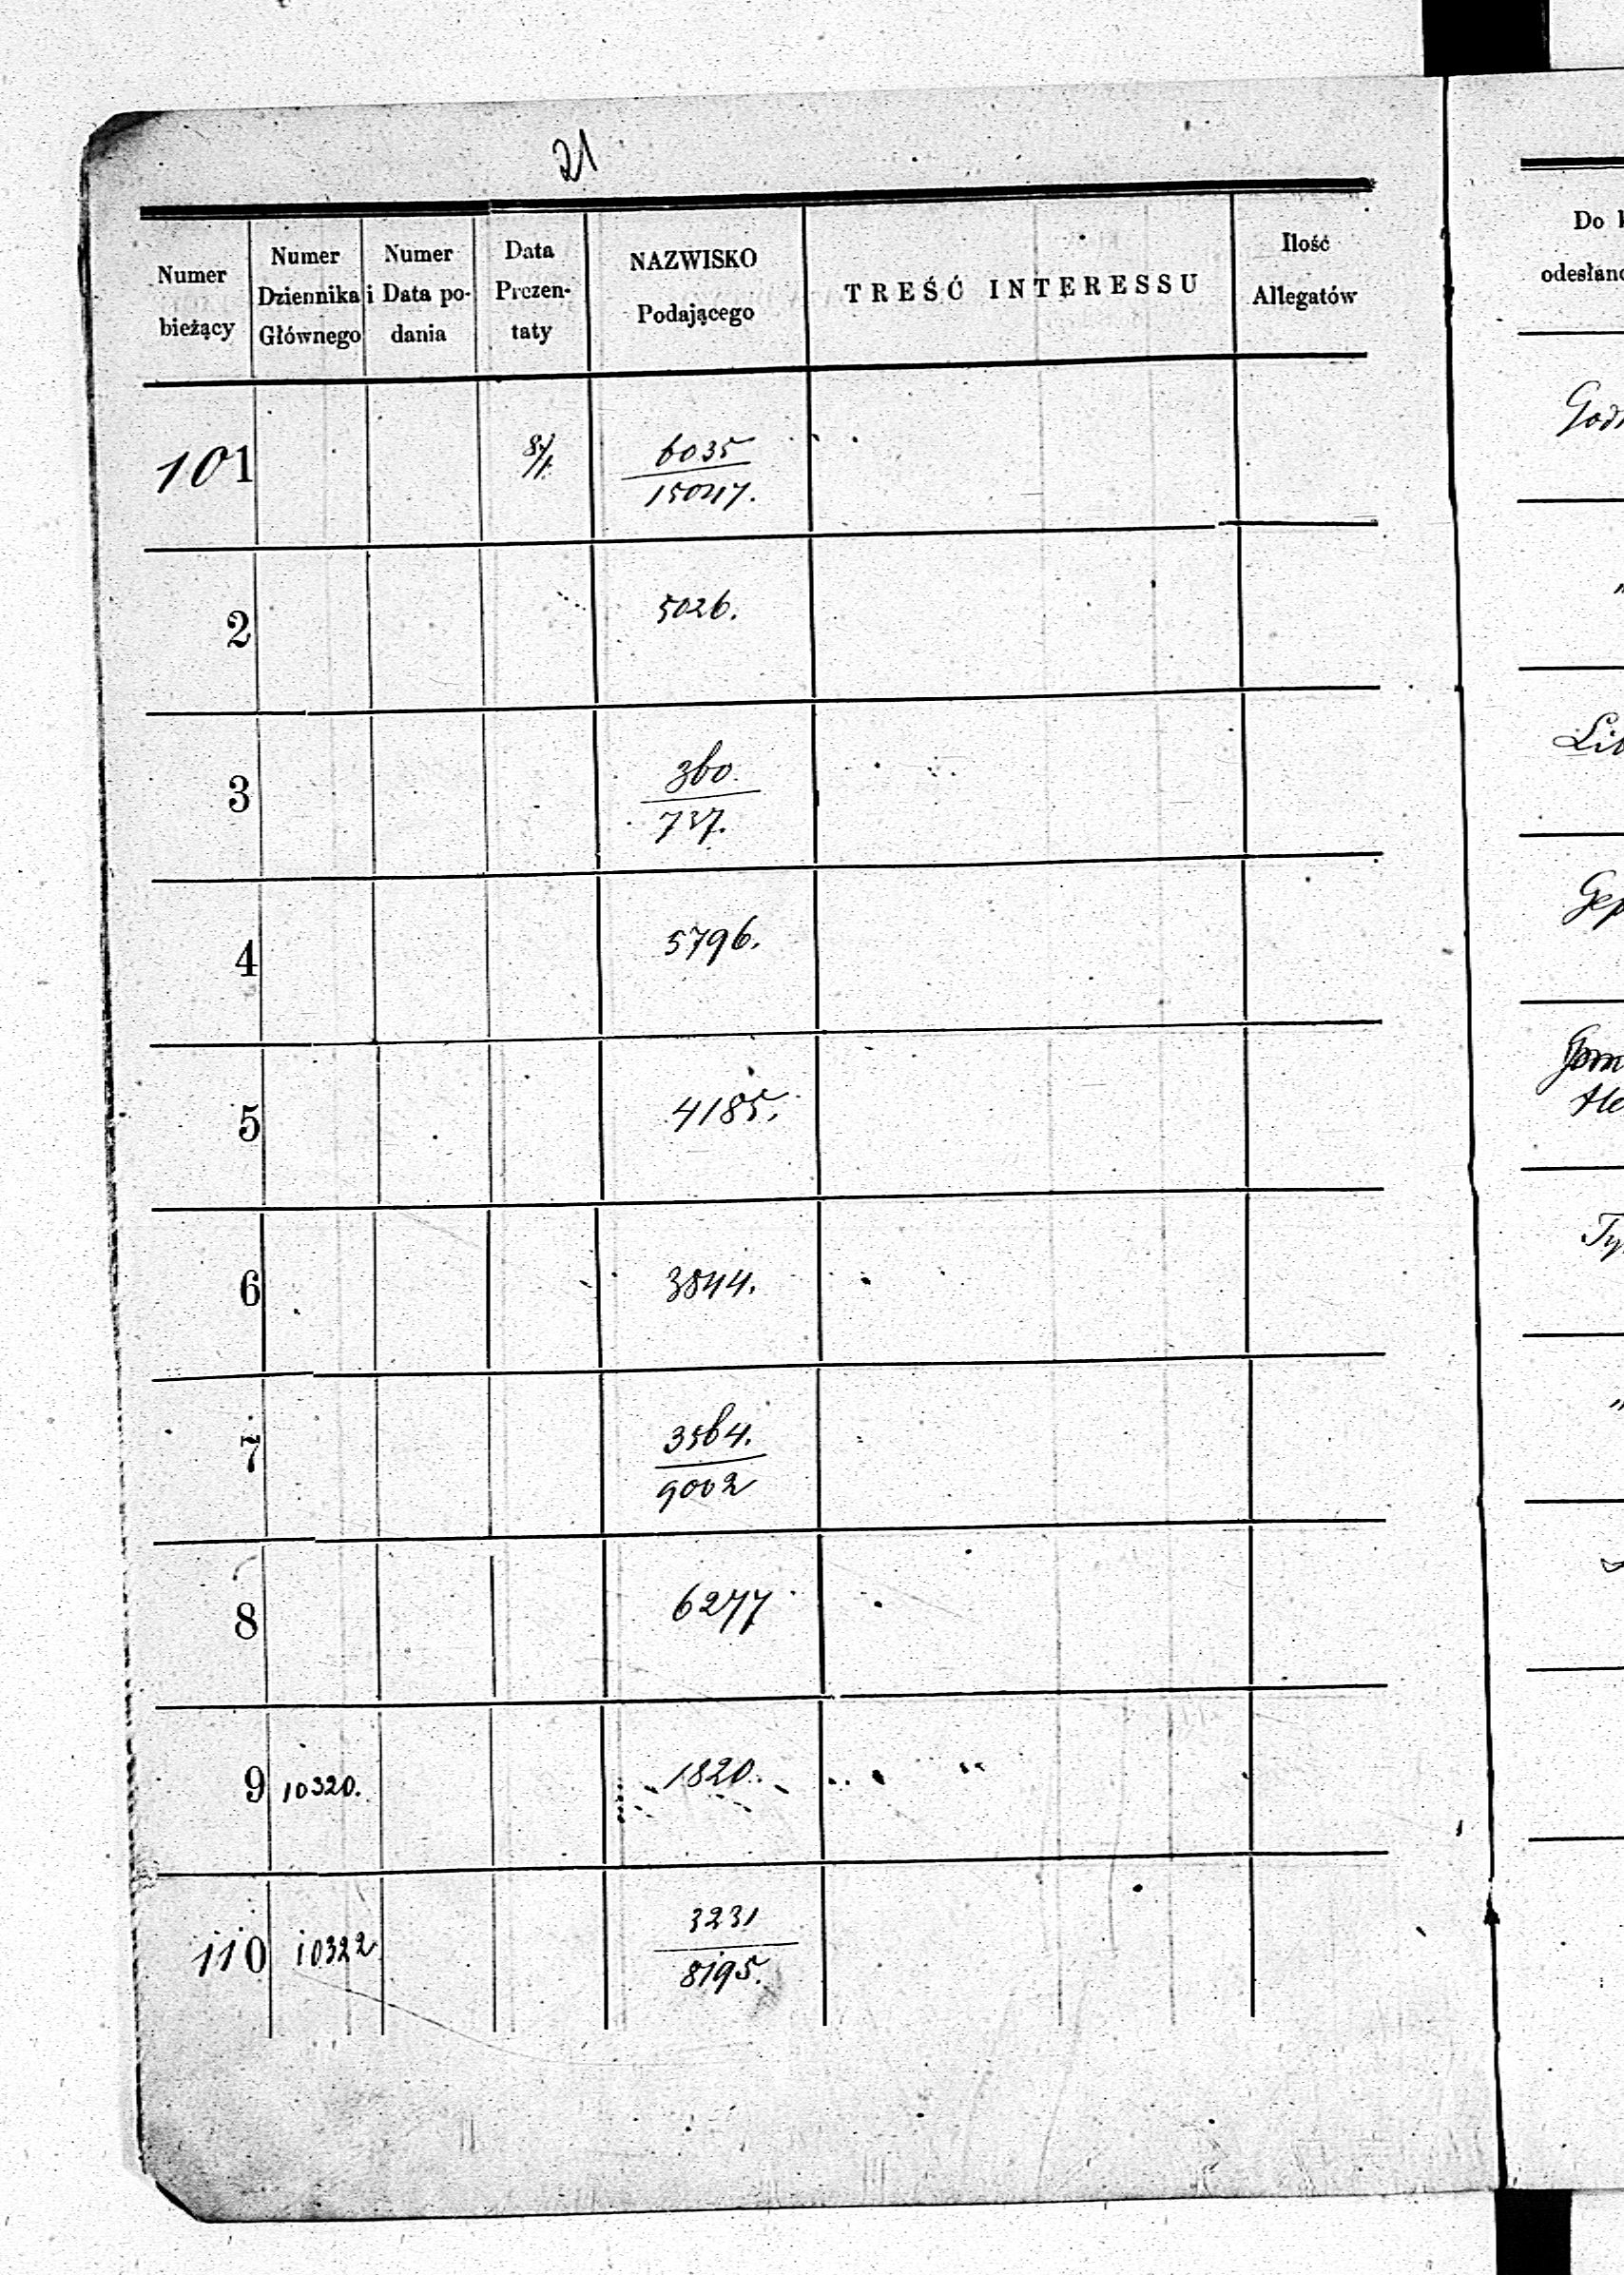 21
Numer bieżący
Numer Dziennika Głównego
Numer i Data podania
Data Prezentaty
NAZWISKO Podającego
TREŚĆ INTERESSU
Ilość Allegatów
101 8/1 6035
15047.
2 5026.
3 360
737.
4 5796.
5 4185.
6 3844.
7 3564.
9002
8 6277
9 10320. 1820.
110 10322 3231
8195.